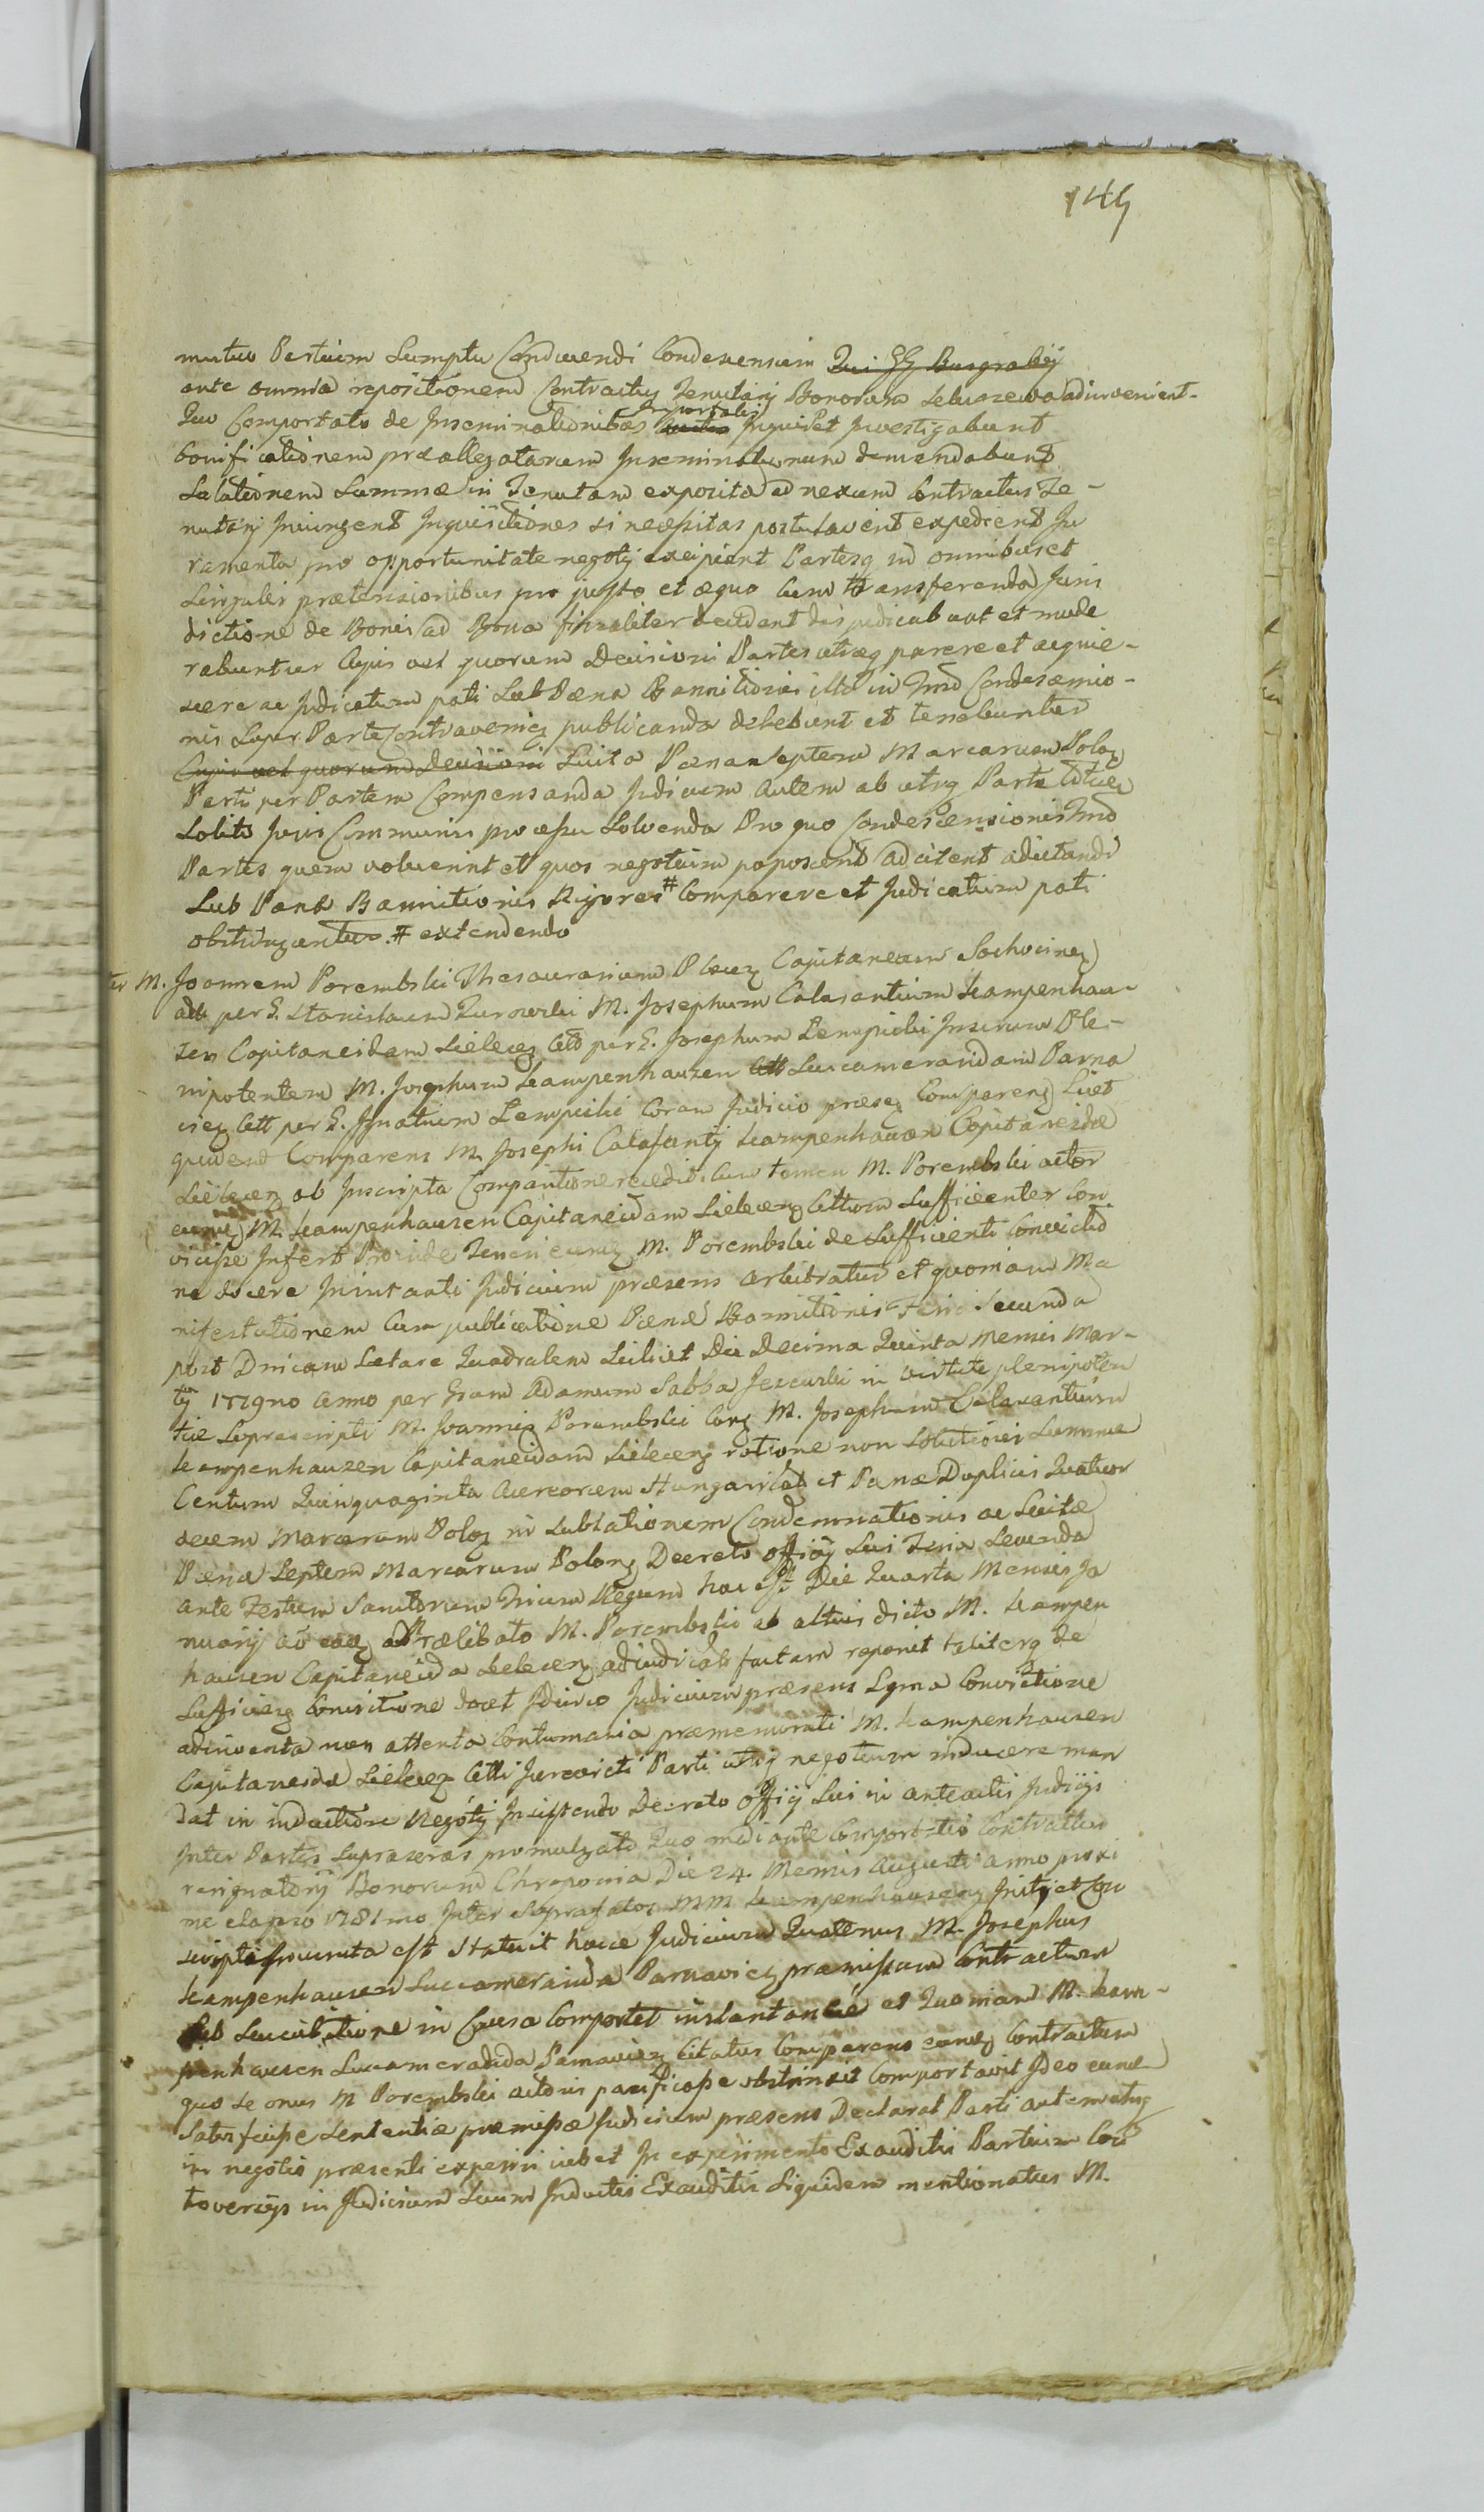 149
mutuo Partium Sumptu Conducendi Condescensuri Qui GG Burgrabij
ante omnia repositionem Contractus Tenutarij Bonorum adinvenient.
Quo Comportato de Inseminationibus importatis Inquirent Investigabunt
bonificationem præallegatarum Inseminationum demandabunt
Solutionem Summæ in Tenutam exposita ad nexum Contractus Te-
nutarij Iniungent Inquisitiones si necessitas postulaverit expedient Ju
ramenta pro opportunitate negotij excipient Partesq in omnibus et
Singulis prætensionibus pro justo et æquo cum transferenda Juris
dictione de Bonis ad Bona finaliter decident dijudicabunt et mode
rabuntur Cujus vel quorum Decisioni Partes utræq parere et acquie-
scere ac Judicatum pati Sub Pæna Bannitionis in Tmo Condescensio-
nis Super Parte Contraveniez publicanda debebunt et tenebuntur
Cujus vel quorum Decisioni Luita Pæna Septem Marcarum Polon
Parti per Partem Compensanda Judicium autem ab utrq Parte
Solito Juris Communis processu Solvenda Pro quo Condescensionis Tmo
Partes quem voluerint et quos negotium poposcerit adcitent adcitandi
Sub Pæna Bannitionis Rigores # Comparere et Judicatum pati
obstringantur. # extendendo
M. Joannem Porembski Thesaurarium Capitaneum Sochocinez
per G. Stanislaum Zurowski M. Josephum Calasantium Kampenhau-
zen Capitaneidam Sielecez Cttd per G. Josephum Lempicki Insirum Ple-
nipotentem M. Josephum Kampenhauzen Succameraridam Parna
viez Ctt per G. Ignatium Lempicki Coram Judicio præsez Comparenz Licet
quidem Comparens M. Josephi Calasantij Kampenhauzen Capitaneidæ
Sielecez ab Inscripta Comparitione recedit. Cum tamen M. Porembski actor
eumq M. Kampenhauzen Capitaneidam Sielecez Cttum Sufficienter Con
vicisse Infert Proinde Teneri eumq M. Porembski de Sufficienti Convictio
ne docere Judicium præsens arbitratur et quoniam Ma
nifestationem Cum publicatione Pænæ Bannitionis Feria Secunda
post Dnicam Lætare Quadralem Scilicet Die Decima Quinta Mensis Mar-
tij 1779no Anno per Gsum Adamum Sabba in virtute plenipoten
tiæ Suprascripti M. Joannis Porembski Conq M. Josephum Calasantium
Kampenhauzen Capitaneidam Sielecez ratione non Solutionis Summæ
Centum Quinquaginta Aureorum Hungarical et Pænæ Duplicis Quatuor
decem Marcarum Polon in Sublationem Condemnationis ac Luitæ
Pæna Septem Marcarum Polong Decreto offij Sui Feria Secunda
ante Festum Sanctorum Trium Regum hoc est Die Quarta Mensis Ja
nuarij a Prælibato M. Porembski ab altius dicto M. Kampen
hauzen Capitaneida Sielecez factam reponit taliterq de
Sufficienz Convictione docet Idcirco Judicium præsens Convictione
adinventa non attenta Contumacia præmemorati M. Kampenhauzen
Capitaneidæ Sielecez Ctti Juravicti Parti utriq negotium inducere man
dat in inductione Negotij Insistendo Decreto Offij Sui in anteactis Judicijs
Inter Partes Supraseras promulgato Quo mediante Comportatio Contractus
resignatorij Bonorum Chroponia Die 24. Mensis Augusti anno proxi
me elapso 1781mo Inter Suprafatos MM Kampenhauzenz Initij et Con
scripti Iniuncta est Statuit hocce Judicium Quatenus M. Josephus
Kampenhauzen Succameraida Parnaviez præmissum Contractum
Sub Succubitione in Causa Comportet instantanee et Quoniam M. Kam-
penhauzen Succameraida Parnaviez Citatus Comparens eundz Contractum
quo se onus M Porembski actoris pacificasse obstrinxit Comportavit Ideo eundem
Satisfecisse Sententiæ præmissæ Judicium præsens Declarat Parti autem utriq
in negotio præsenti experiri iubet In experimento Exauditis Partium Con
toversijs in Judicium Suum Inductis Exauditis Siquidem mentionatus M.